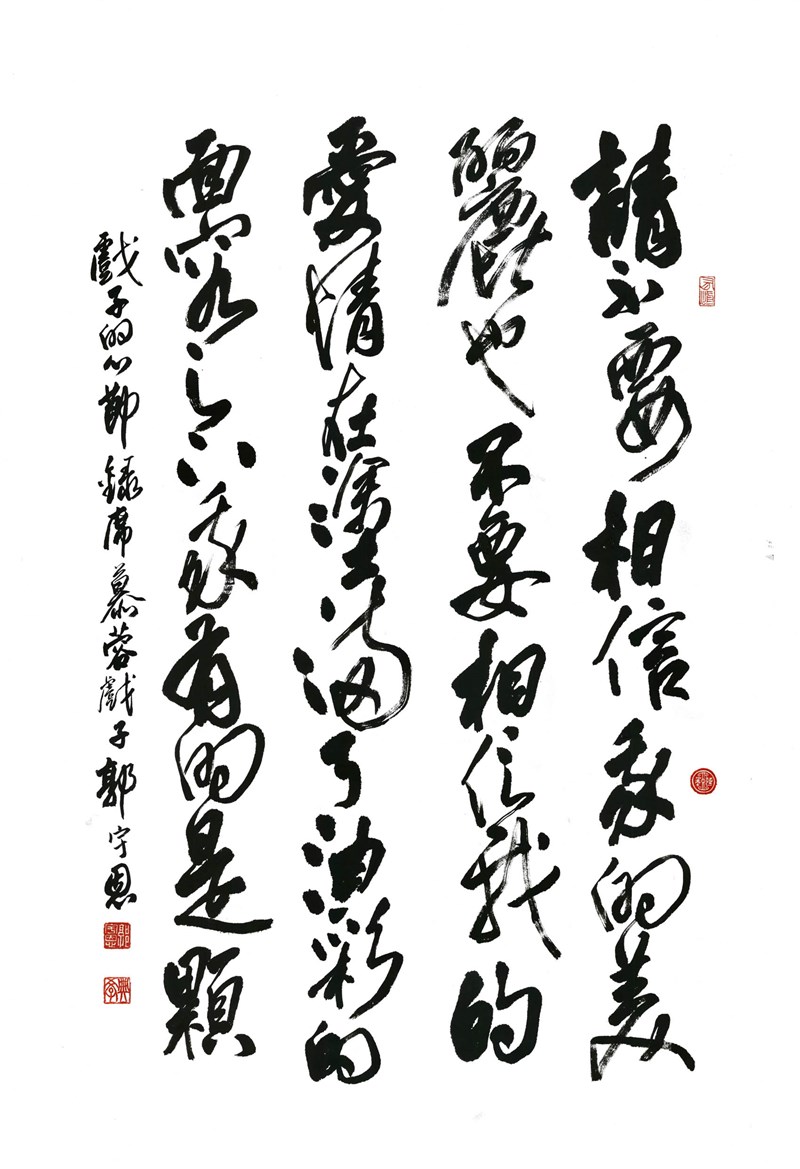 請不要相信我的美
麗也不要相信我的
愛情在塗滿了油彩的
面容之下我有的是顆
戲子的心節錄席慕蓉戲子郭守恩